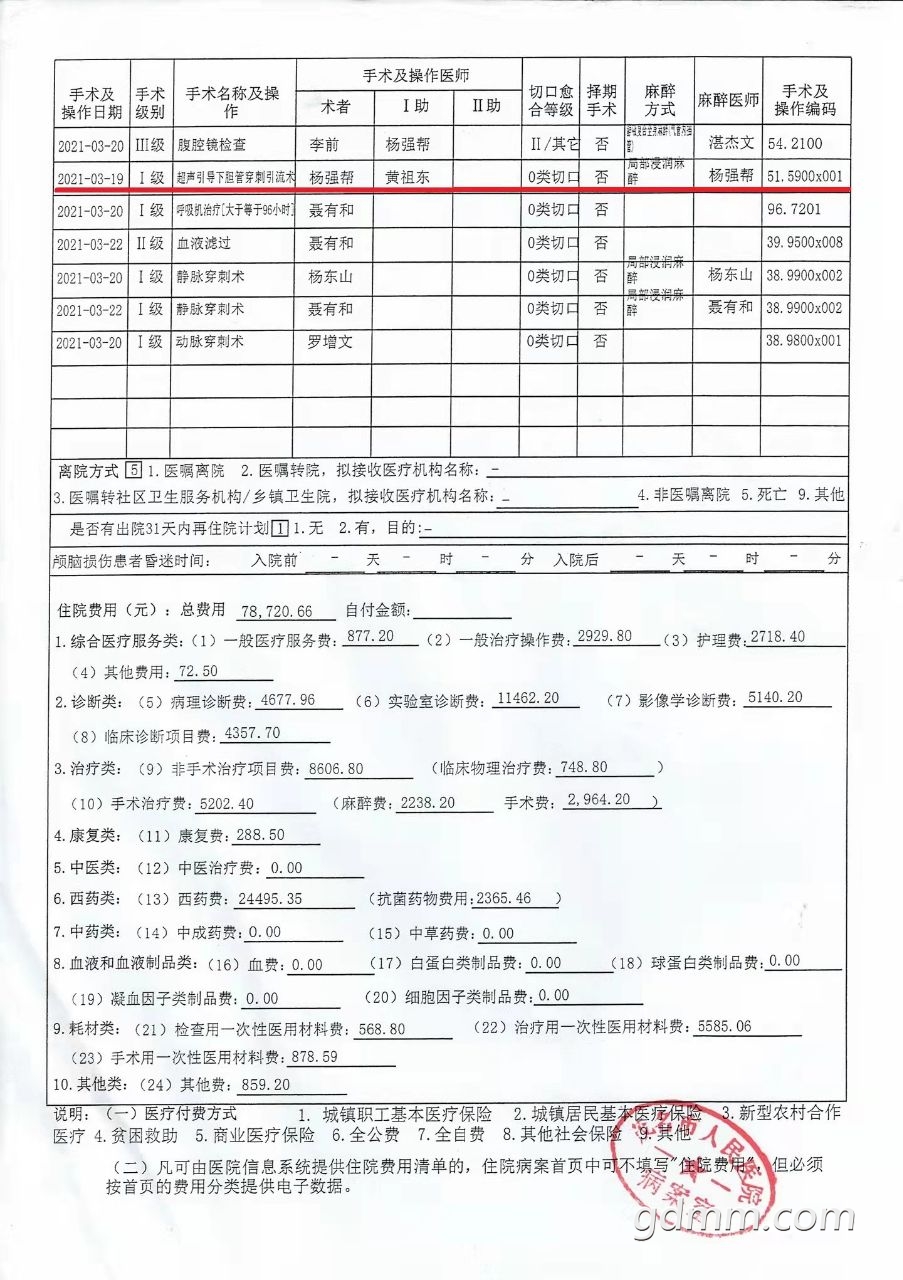 手术及操作医师
手术及操作日期 手术级别 手术名称及操作 术者 I助 II助 切口愈合等级 择期手术 麻醉方式 麻醉医师 手术及操作编码
2021-03-20 III级 腹腔镜检查 李前 杨强帮 II/其它 否 湛杰文 54.2100
2021-03-19 I级 超声引导下胆管穿刺引流术 杨强帮 黄祖东 0类切口 否 局部浸润麻醉 杨强帮 51.5900x001
2021-03-20 I级 呼吸机治疗[大于等于96小时] 聂有和 0类切口 否 96.7201
2021-03-22 II级 血液滤过 聂有和 0类切口 否 39.9500x008
2021-03-20 I级 静脉穿刺术 杨东山 0类切口 否 局部浸润麻醉 杨东山 38.9900x002
2021-03-22 I级 静脉穿刺术 聂有和 0类切口 否 局部浸润麻醉 聂有和 38.9900x002
2021-03-20 I级 动脉穿刺术 罗增文 0类切口 否 38.9800x001
离院方式 5 1.医嘱离院 2.医嘱转院，拟接收医疗机构名称：-
3.医嘱转社区卫生服务机构/乡镇卫生院，拟接收医疗机构名称：- 4.非医嘱离院 5.死亡 9.其他
是否有出院31天内再住院计划 1 1.无 2.有，目的:-
颅脑损伤患者昏迷时间： 入院前 - 天 - 时 - 分 入院后 - 天 - 时 - 分
住院费用（元）：总费用 78,720.66 自付金额:
1.综合医疗服务类:（1）一般医疗服务费:877.20 （2）一般治疗操作费:2929.80 （3）护理费:2718.40
（4）其他费用:72.50
2.诊断类:（5）病理诊断费:4677.96 （6）实验室诊断费:11462.20 （7）影像学诊断费:5140.20
（8）临床诊断项目费:4357.70
3.治疗类:（9）非手术治疗项目费:8606.80 （临床物理治疗费:748.80 ）
（10）手术治疗费:5202.40 （麻醉费:2238.20 手术费:2,964.20 ）
4.康复类:（11）康复费:288.50
5.中医类:（12）中医治疗费:0.00
6.西药类:（13）西药费:24495.35 （抗菌药物费用:2365.46 ）
7.中药类:（14）中成药费:0.00 （15）中草药费:0.00
8.血液和血液制品类:（16）血费:0.00 （17）白蛋白类制品费:0.00 （18）球蛋白类制品费:0.00
（19）凝血因子类制品费:0.00 （20）细胞因子类制品费:0.00
9.耗材类:（21）检查用一次性医用材料费:568.80 （22）治疗用一次性医用材料费:5585.06
（23）手术用一次性医用材料费:878.59
10.其他类:（24）其他费:859.20
说明:（一）医疗付费方式 1.城镇职工基本医疗保险 2.城镇居民基本医疗保险 3.新型农村合作
医疗 4.贫困救助 5.商业医疗保险 6.全公费 7.全自费 8.其他社会保险 9.其他
（二）凡可由医院信息系统提供住院费用清单的，住院病案首页中可不填写"住院费用"，但必须
按首页的费用分类提供电子数据。
市人民医院
病案室
gdmm.com